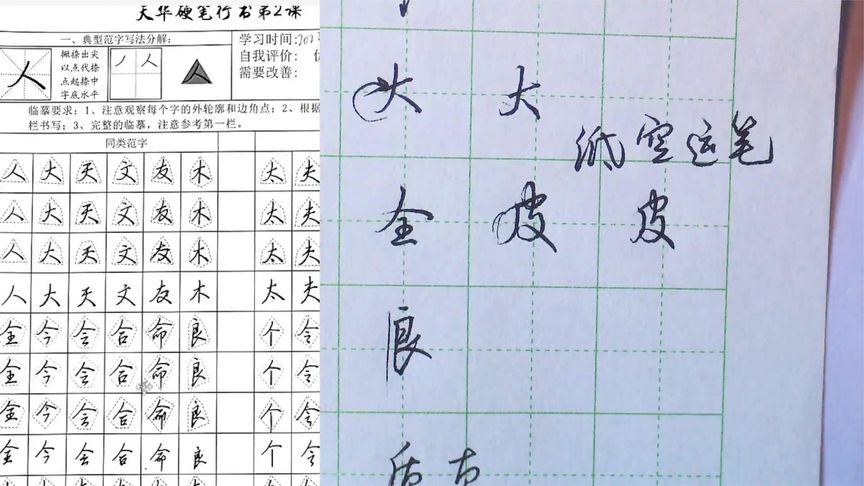 天华硬笔行书第2课
一、典型范字写法分解：
撇捺出尖
以点代捺
点起捺中
字底水平
人
人 人
学习时间：
自我评价：
需要改善：
临摹要求：1、注意观察每个字的外轮廓和边角点；2、根据
栏书写；3、完整的临摹，注意参考第一栏。
同类范字
人 大 天 文 友 木 太 夫
人 大 天 文 友 木 太 夫
人 大 天 文 友 木 太 夫
人 大 天 文 友 木 太 夫
全 今 会 合 命 良 个 令
全 今 会 合 命 良 个 令
全 今 会 合 命 良 个 令
全 今 会 合 命 良 个 令
大 大
低空运笔
全 皮 皮
良